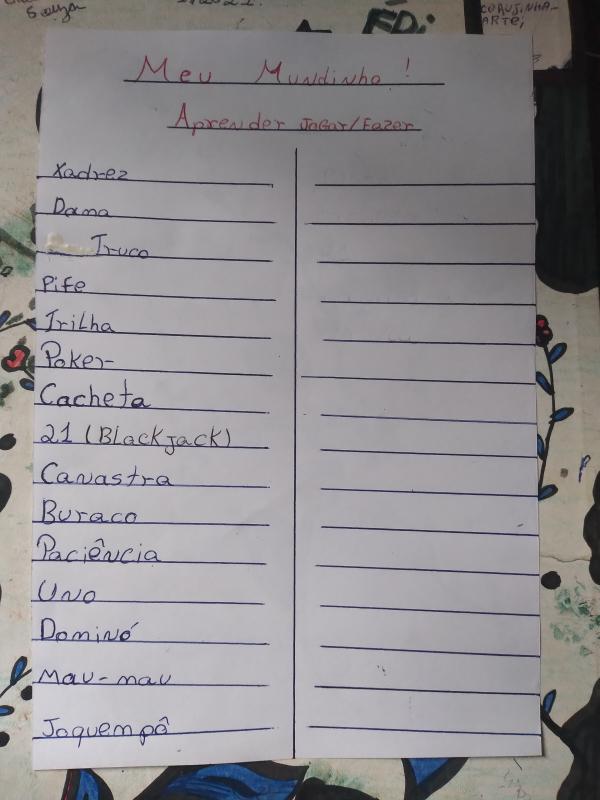 Souza
EDi
CORUJINHA-
ARTE;
Meu Mundinho !
Aprender Jogar/Fazer
Xadrez
Dama
Truco
Pife
Trilha
Poker
Cacheta
21 (Blackjack)
Canastra
Buraco
Paciência
Uno
Dominó
Mau-mau
Joquempô